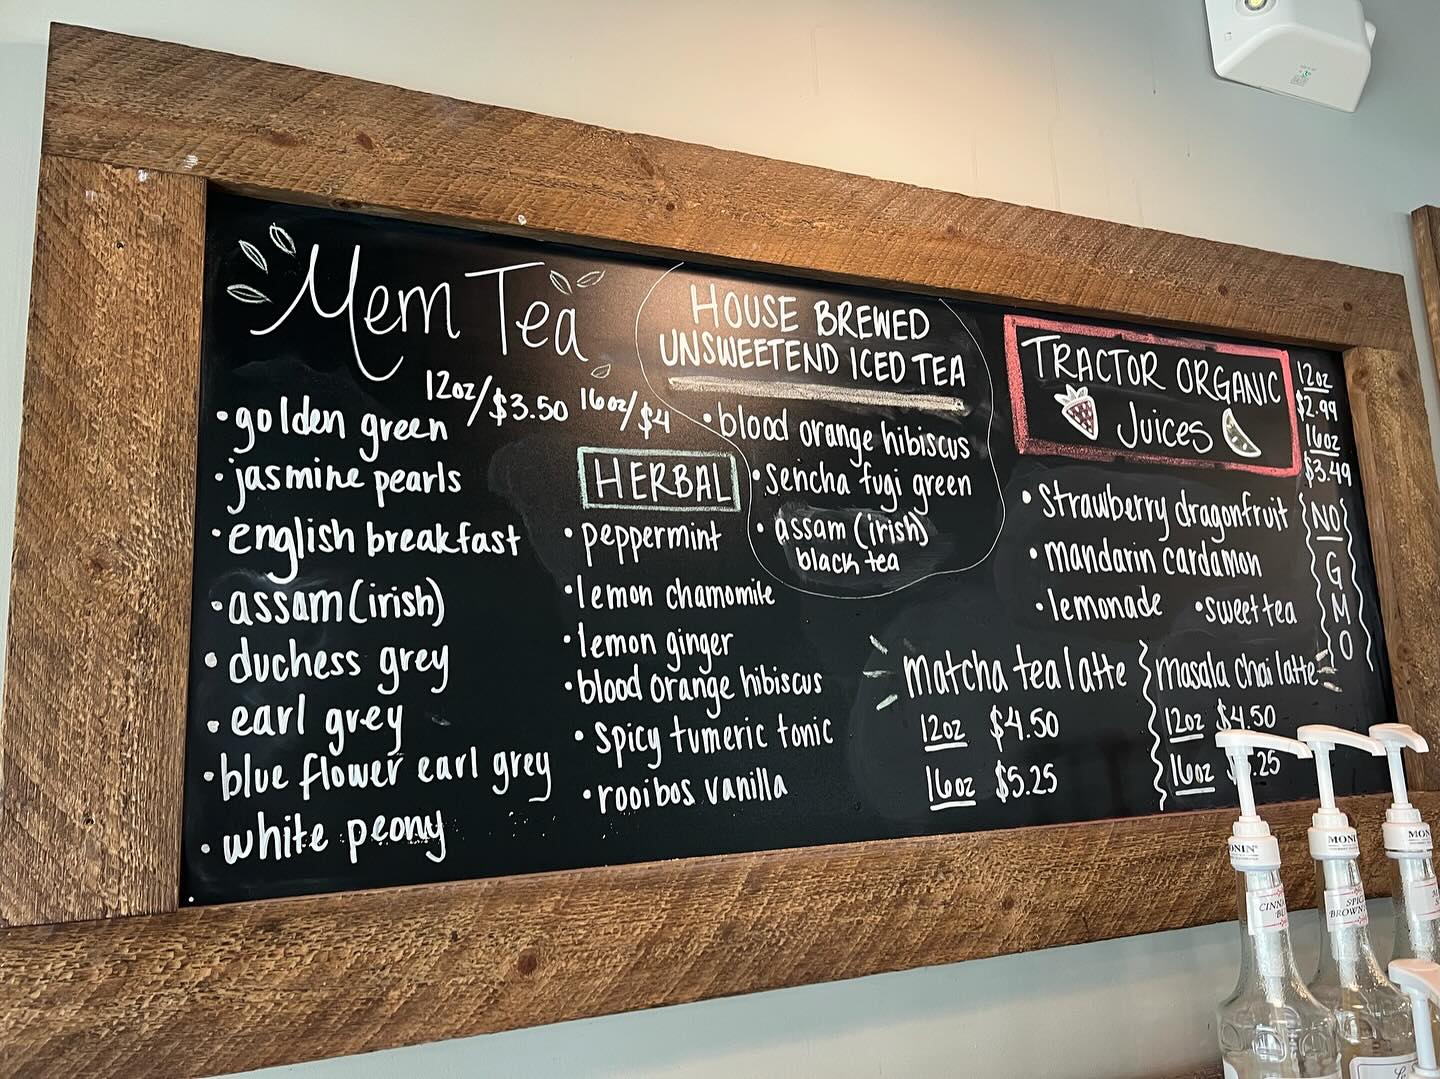 Mem Tea
12oz/$3.50 16oz/$4
• golden green
• jasmine pearls
• english breakfast
• assam (irish)
• duchess grey
• earl grey
• blue flower earl grey
• white peony
HERBAL
• peppermint
• lemon chamomile
• lemon ginger
• blood orange hibiscus
• spicy tumeric tonic
• rooibos vanilla
HOUSE BREWED
UNSWEETEND ICED TEA
• blood orange hibiscus
• sencha fugi green
• assam (irish)
black tea
TRACTOR ORGANIC
Juices
12oz
$2.99
16oz
$3.49
NO
G
M
O
• strawberry dragonfruit
• mandarin cardamon
• lemonade • sweet tea
matcha tea latte
12oz $4.50
16oz $5.25
masala chai latte
12oz $4.50
16oz .25
MONIN